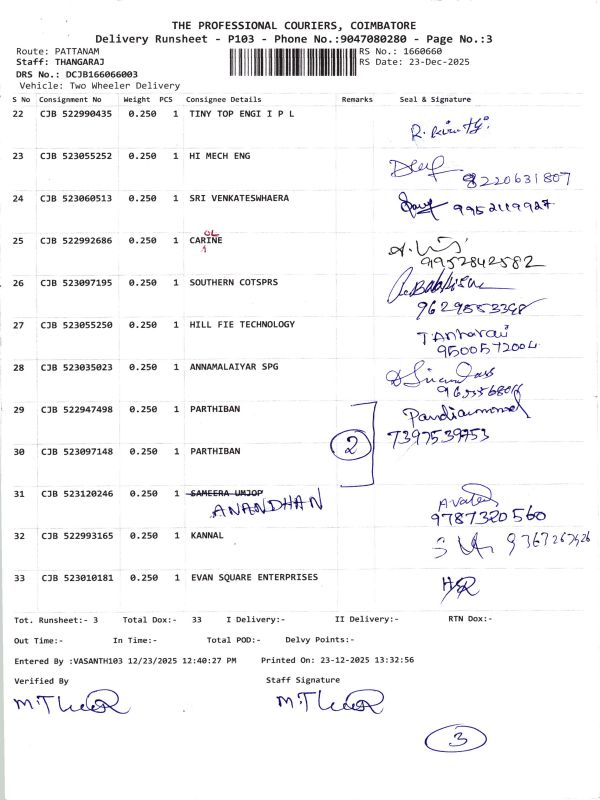 THE PROFESSIONAL COURIERS, COIMBATORE
Delivery Runsheet - P103 - Phone No.:9047080280 - Page No.:3
Route: PATTANAM RS No.: 1660660
Staff: THANGARAJ RS Date: 23-Dec-2025
DRS No.: DCJB166066003
Vehicle: Two Wheeler Delivery
S No Consignment No Weight PCS Consignee Details Remarks Seal & Signature
22 CJB 522990435 0.250 1 TINY TOP ENGI I P L
23 CJB 523055252 0.250 1 HI MECH ENG
8220631807
24 CJB 523060513 0.250 1 SRI VENKATESWHAERA
9952119927
OL
25 CJB 522992686 0.250 1 CARINE
9952842582
26 CJB 523097195 0.250 1 SOUTHERN COTSPRS
9629553348
27 CJB 523055250 0.250 1 HILL FIE TECHNOLOGY
9500572004
28 CJB 523035023 0.250 1 ANNAMALAIYAR SPG
29 CJB 522947498 0.250 1 PARTHIBAN
2 7397539753
30 CJB 523097148 0.250 1 PARTHIBAN
31 CJB 523120246 0.250 1 SAMEERA UMJOP
ANANDHAN
9787320560
32 CJB 522993165 0.250 1 KANNAL
33 CJB 523010181 0.250 1 EVAN SQUARE ENTERPRISES
Tot. Runsheet:- 3 Total Dox:- 33 I Delivery:- II Delivery:- RTN Dox:-
Out Time:- In Time:- Total POD:- Delvy Points:-
Entered By :VASANTH103 12/23/2025 12:40:27 PM Printed On: 23-12-2025 13:32:56
Verified By Staff Signature
3